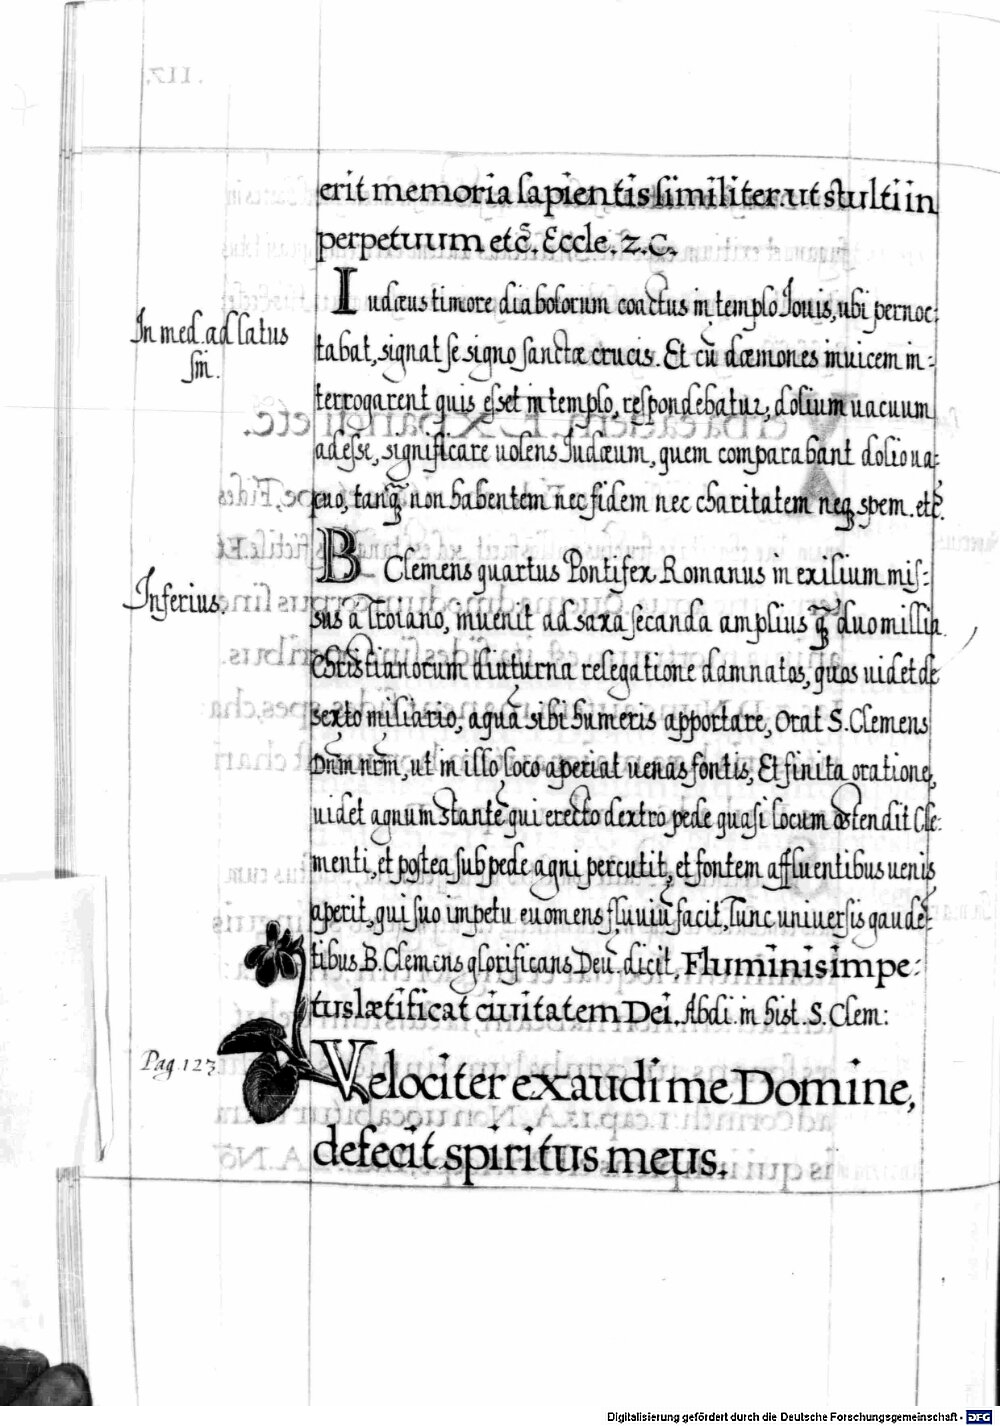 erit memoria sapientis similiter ut stulti in
perpetuum etc̃. Eccle. 2. C.
In med. ad latus
sin.
Iudæus timore diabolorum coactus in templo Jouis, ubi pernoc:
tabat, signat se signo sanctæ crucis. Et cũ dæmones inuicem in-:
terrogarent quis esset in templo, respondebatur, dolium uacuum
adesse, significare uolens Judæum, quem comparabant dolio ua:
cuo, tanq̃ non habentem nec fidem nec charitatem neq; spem. etc̃.
Inferius.
B Clemens quartus Pontifex Romanus in exilium mis-:
sus a Troiano, inuenit ad saxa secanda amplius q̃ duo millia
Christianorum diuturna relegatione damnatos, quos uidet de
sexto miliario, aquã sibi humeris apportare, Orat S. Clemens
Dñm nr̃m, ut in illo loco aperiat uenas fontis, Et finita oratione,
uidet agnum stantẽ qui erecto dextro pede quasi locum ostendit Cle:
menti, et postea sub pede agni percutit, et fontem affluentibus uenis
aperit, qui suo impetu euomens fluuiũ facit, Tunc uniuersis gaudẽ-
tibus B. Clemens glorificans Deũ dicit, Fluminis impe:
tus lætificat ciuitatem Dei. Abdi. in hist. S. Clem:
Pag. 123
Velociter exaudi me Domine,
defecit spiritus meus.
Digitalisierung gefördert durch die Deutsche Forschungsgemeinschaft - DFG